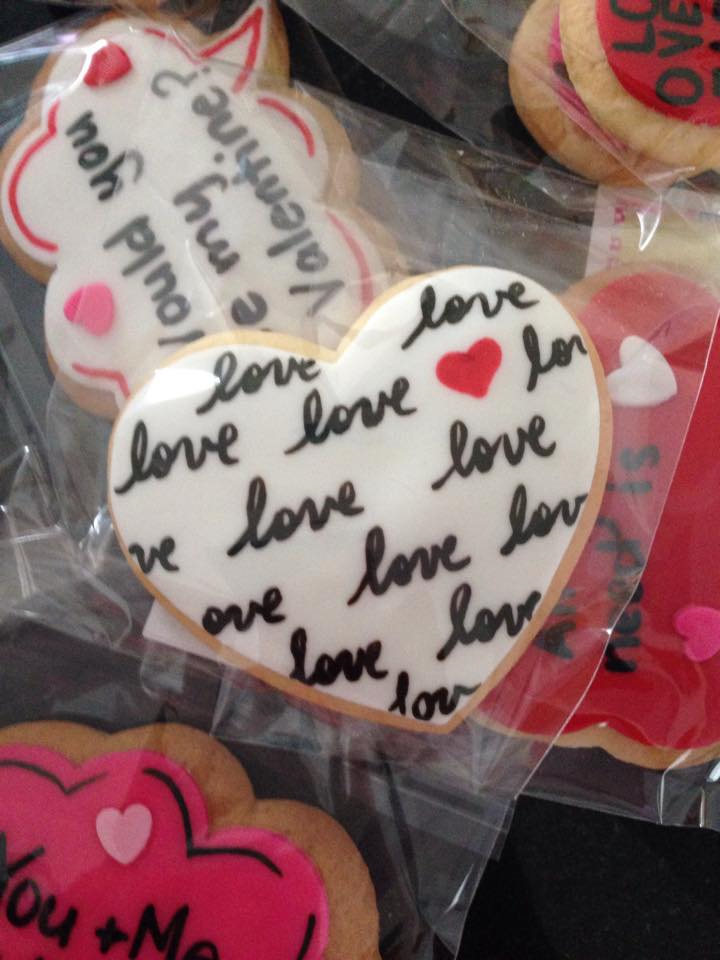 you
Would you
be my
Valentine?
LO
OVE
love
love
lov
love
love
love
love
lov
ve
love
ove
love
love
lov
All
need is
You + Me